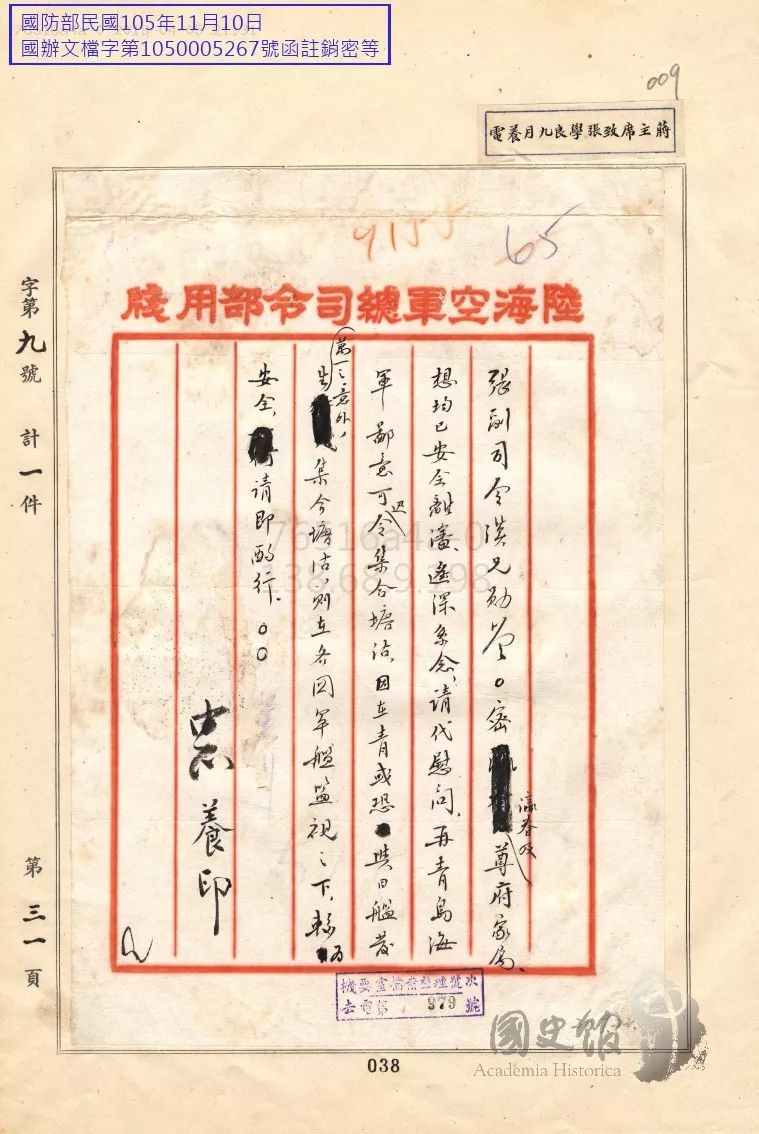 國防部民國105年11月10日
國辦文檔字第1050005267號函註銷密等
009
蔣主席致張學良九月養電
4155
65
陸海空軍總司令部用牋
張副司令漢兄勛鑒。密瀛眷及尊府家屬、
想均已安全離瀋、遙深系念、請代慰問、再青島海
軍鄙意可迅令集合塘沽、因在青或恐與日艦發
生萬一之意外、集合塘沽、則在各國軍艦監視之下、較為
安全、請即酌行、。。
中正養印
機要室檔案整理號次
去電第 979 號
字第九號 計一件
第三一頁
76516a4
138.68.9.198
國史館
Academia Historica
038